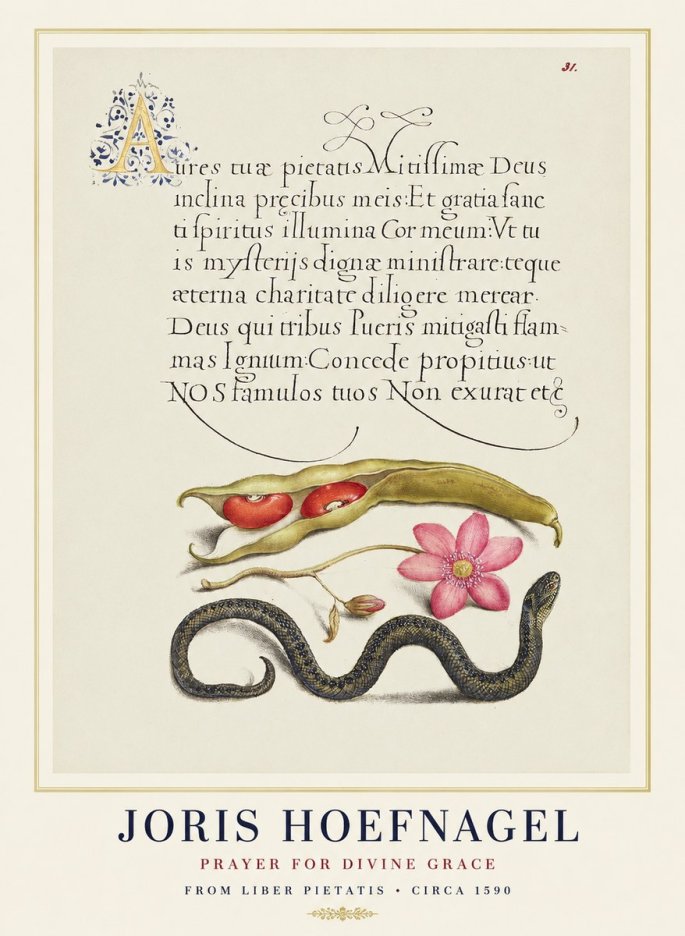 31.
Aures tuæ pietatis Mitiſſimæ Deus
inclina pręcibus meis:Et gratia ſanc
ti ſpiritus illumina Cor meum:Vt tu
is myſterijs dignæ miniſtrare:teque
æterna charitate diligere merear.
Deus qui tribus Pueris mitigaſti flam=
mas Ignium:Concede propitius:ut
NOS famulos tuos Non exurat etc
JORIS HOEFNAGEL
PRAYER FOR DIVINE GRACE
FROM LIBER PIETATIS • CIRCA 1590